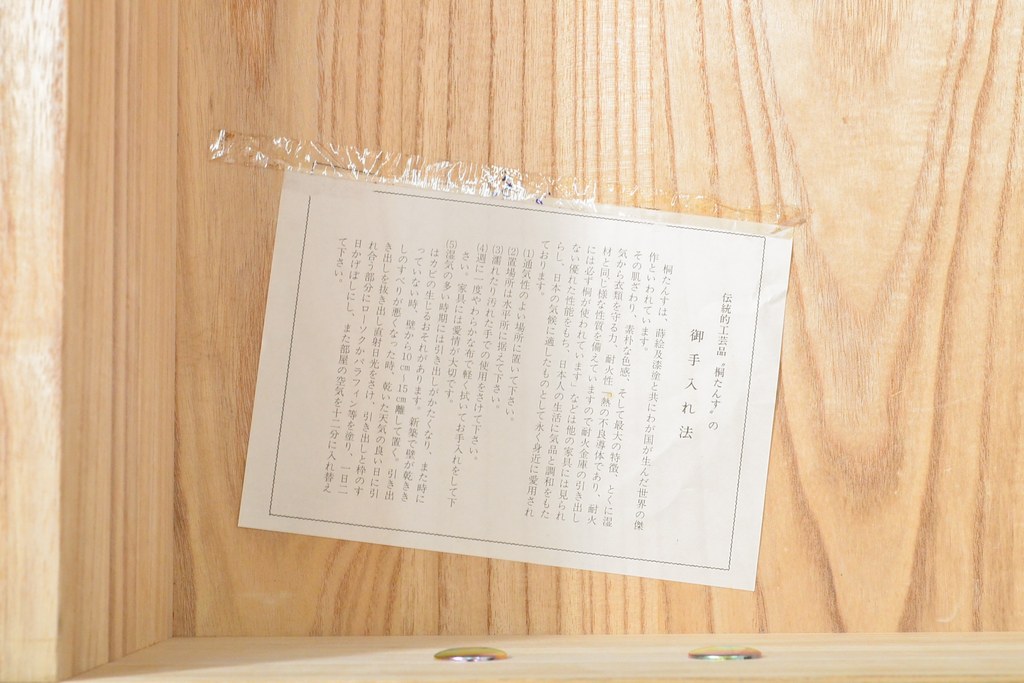 伝統的工芸品〝桐たんす〟の
御手入れ法
桐たんすは、蒔絵及漆塗と共にわが国が生んだ世界の傑
作といわれています。
その肌ざわり、素朴な色感、そして最大の特徴、とくに湿
気から衣類を守る力、耐火性『熱の不良導体であり、耐火
材と同じ様な性質を備えていますので耐火金庫の引き出し
には必ず桐が使われています』などは他の家具には見られ
ない優れた性能をもち、日本人の生活に気品と調和をもた
らし、日本の気候に適したものとして永く身近に愛用され
ております。
(1)通気性のよい場所に置いて下さい。
(2)置場所は水平所に据えて下さい。
(3)濡れたり汚れた手での使用をさけて下さい。
(4)週に一度やわらかな布で軽く拭いてお手入れをして下
さい。家具には愛情が大切です。
(5)湿気の多い時期には引き出しがかたくなり、また時に
はカビの生じるおそれがあります。新築で壁が乾きき
っていない時、壁から10㎝〜15㎝離して置く、引き出
しのすべりが悪くなった時、乾いた天気の良い日に引
き出しを抜き出し直射日光をさけ、引き出しと枠のす
れ合う部分にローソクかパラフィン等を塗り、一日二
日かげぼしにし、また部屋の空気を十二分に入れ替え
て下さい。